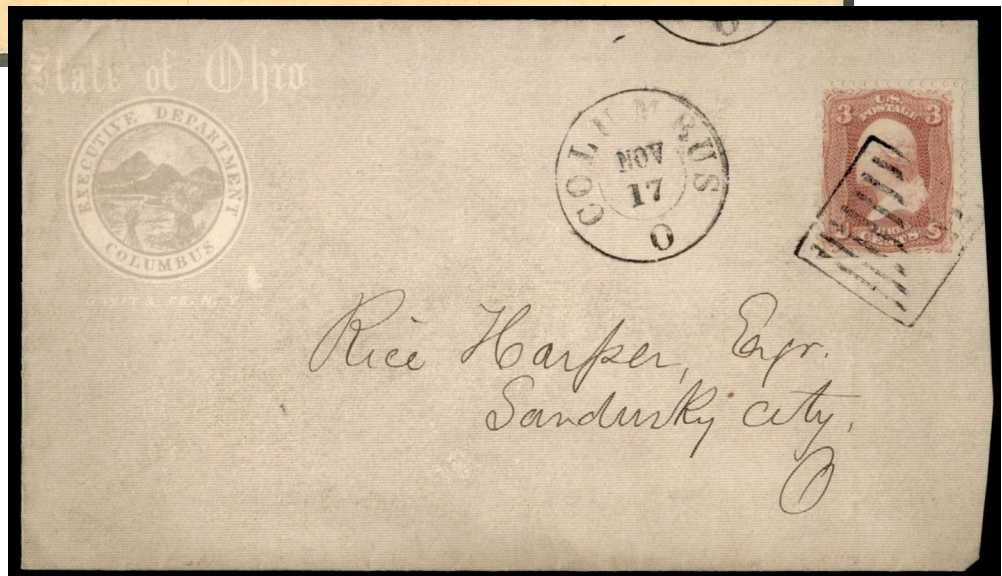 State of Ohio
EXECUTIVE DEPARTMENT
COLUMBUS
O
COLUMBUS
NOV
17
O
3 U.S. 3
POSTAGE
CENTS
Rice Harper, Esqr.
Sandusky City,
O